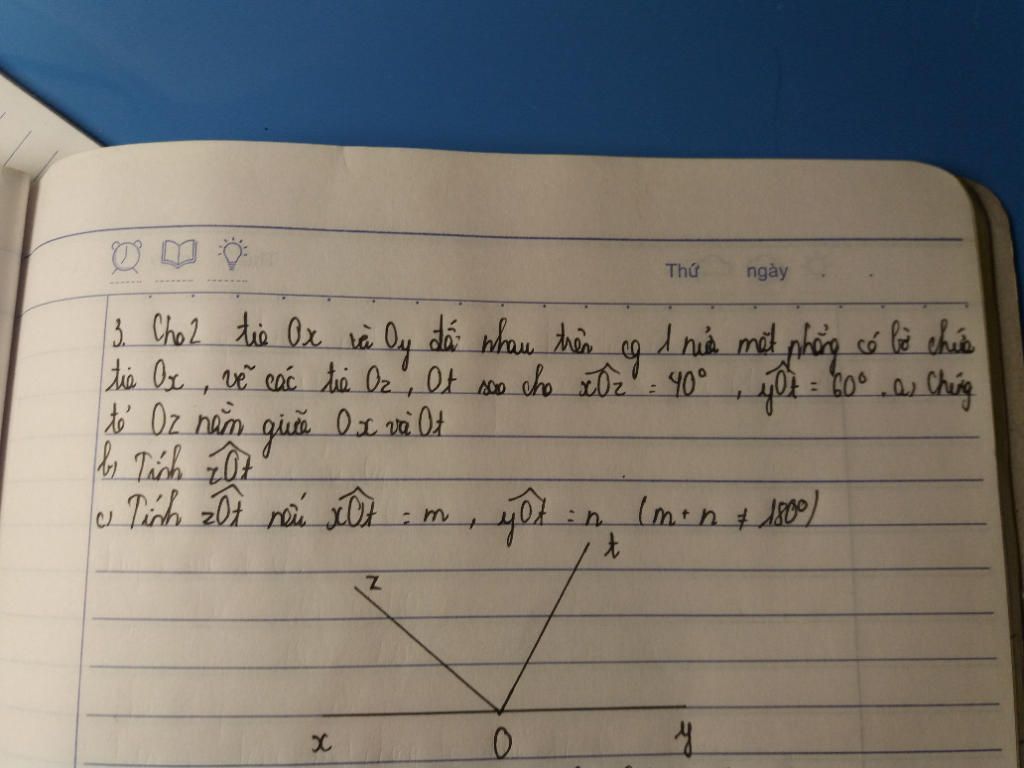 Thứ ngày
3. Cho 2 tia Ox và Oy đối nhau trên cg 1 nửa mặt phẳng có bờ chứa
tia Ox, vẽ các tia Oz, Ot sao cho xOz = 40°, yOt = 60°. a, Chứng
tỏ Oz nằm giữa Ox và Ot
b, Tính zOt
c, Tính zOt nếu xOt = m, yOt = n (m + n ≠ 180°)
z t
x O y